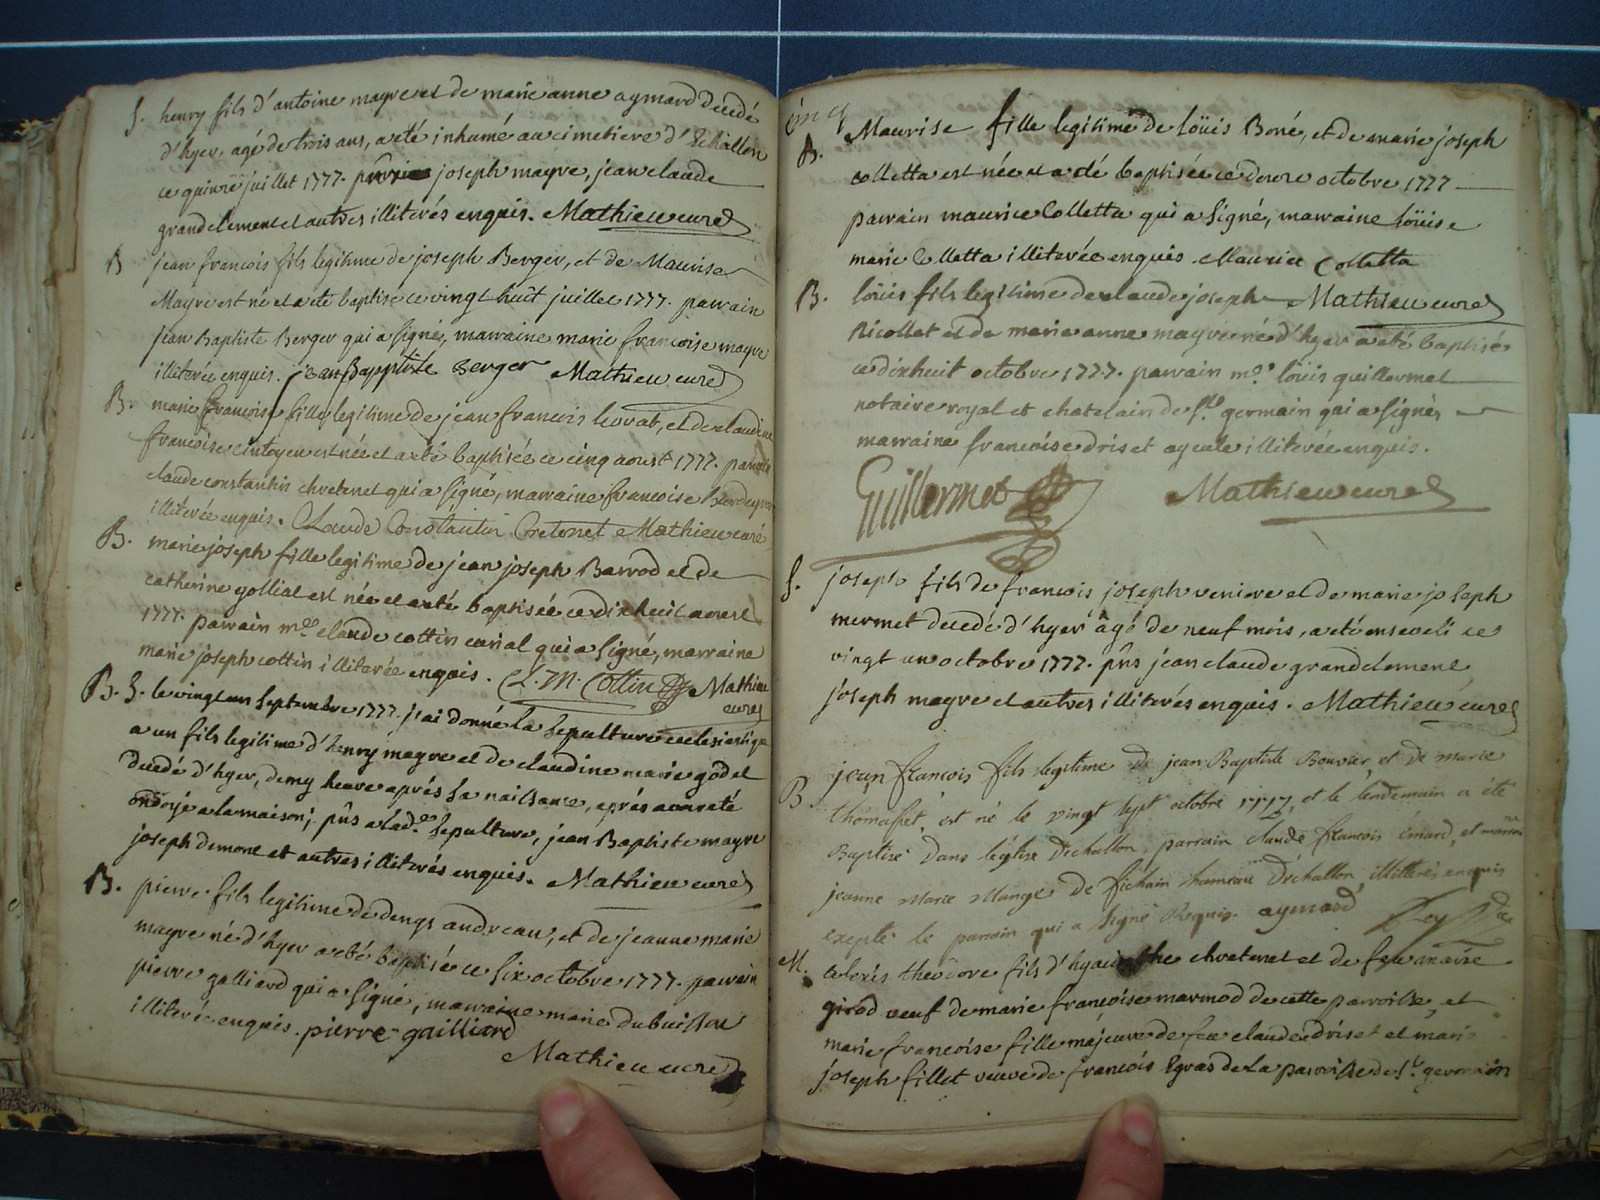 S. henry fils d'antoine mayre et de marie anne aymard decedé
d'hyer, agé de trois ans, a eté inhumé au cimetiere d'Echallon
ce quinze juillet 1777. joseph mayre, jean claude
grandclement et autres illiterés enquis. Mathieu curé
B jean francois fils legitime de joseph Berger, et de Maurise
Mayre est né et a eté baptisé ce vingt huit juillet 1777. parrain
jean Baptiste Berger qui a signé, marraine marie francoise mayre
illiterée enquis. jean Bapptiste Berger Mathieu curé
B. marie francoise fille legitime de jean francois et de claudine
francoise est née et a eté baptisée ce cinq aoust 1777. parrain
claude constantin chretenet qui a signé, marraine francoise
illiterée enquis. Claude Constantin Cretenet Mathieu curé
B. marie joseph fille legitime de jean joseph Barrod et de
catherine golliat est née et a eté baptisée ce dixheuit aoust
1777. parrain mre claude cottin curial qui a signé, marraine
marie joseph cottin illiterée enquis. C. M. Cottin Mathieu
curé
B. S. le vingt un septembre 1777. j'ai donné la sepulture eclesiastique
a un fils legitime d'henry mayre et de claudine marie godet
decedé d'hyer, demy heure aprés sa naissance, aprés avoir eté
ondoyé a la maison; pñs a lad.e sepulture, jean Baptiste mayre
joseph demone et autres illiterés enquis. Mathieu curé
B. pierre fils legitime de denys andrean, et de jeanne marie
mayre né d'hyer a eté baptisé ce six octobre 1777. parrain
pierre galliard qui a signé, marraine marie dubuisson
illiterée enquis. pierre gailliard
Mathieu curé
B. Maurise fille legitime de loüis Boné, et de marie joseph
colletta est née et a eté baptisée ce douze octobre 1777
parrain maurice Colletta qui a signé, marraine loüise
marie Colletta illiterée enquis. Maurice Colletta
B. loüis fils legitime de claude joseph Mathieu curé
Nicollet et de marie anne mayre né d'hyer a eté baptisé
ce dixheuit octobre 1777. parrain mre loüis guillermet
notaire royal et chatelain de St germain qui a signé,
marraine francoise driset ayeule illiterée enquis.
Guillermet Mathieu curé
S. joseph fils de francois joseph veniere et de marie joseph
mermet decedé d'hyer agé de neuf mois, a eté enseveli ce
vingt un octobre 1777. pñs jean claude grandclement,
joseph mayre et autres illiterés enquis. Mathieu curé
B jean francois fils legitime de jean Baptiste Bouvier, et de marie
thomasset, est né le vingt sept octobre 1777, et le lendemain a été
Baptisé dans l'eglise d'echallon, parrain claude francois émard, et marraine
jeanne marie Mange de hameau d'échallon, illitterés enquis
excepté le parrain qui a signé Requis. aymard Rey
M. alexis theodore fils d'hyacinthe chretenet et de feue marie
girod veuf de marie francoise marmod de cette parroisse, et
marie francoise fille majeure de feu claude driset et marie
joseph fillet veuve de francois Egraz de la parroisse de St. germain